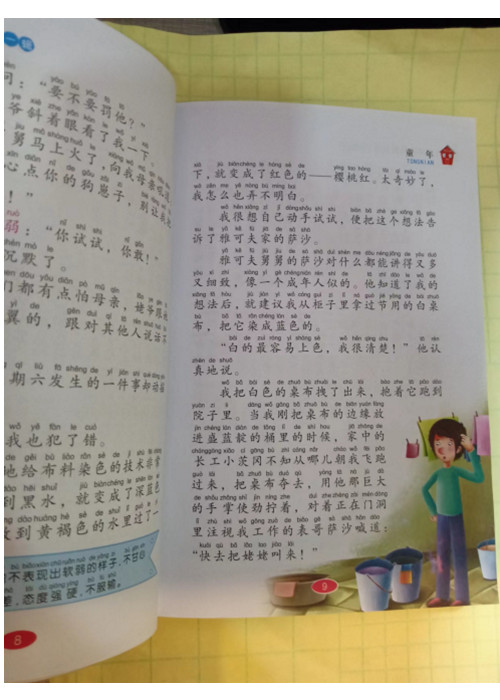 一辑
问：“要不要罚他？”
爷斜着眼看了我一下，
舅马上火了，向我母亲
心点你的狗崽子，别让我
！”
弱：“你试试，你敢！”
沉默了。
们都有点怕母亲，姥爷跟她
翼的，跟对其他人说话不
期六发生的一件事却动摇
我也犯了错。
地给布料染色的技术非常
到黑水，就变成了深蓝色
放到黄褐色的水里过了一
不表现出软弱的样子，不甘心
态度强硬，不服输。
8
童年
TONGNIAN
下，就变成了红色的——樱桃红。太奇妙了，
我怎么也弄不明白。
我很想自己动手试试，便把这个想法告
诉了雅可夫家的萨沙。
雅可夫舅舅的萨沙对什么都能讲得又多
又细致，像一个成年人似的。他知道了我的
想法后，就建议我从柜子里拿过节用的白桌
布，把它染成蓝色的。
“白的最容易上色，我很清楚！”他认
真地说。
我把白色的桌布拽了出来，抱着它跑到
院子里。当我刚把桌布的边缘放
进盛蓝靛的桶里的时候，家中的
长工小茨冈不知从哪儿朝我飞跑
过来，把桌布夺去，用他那巨大
的手掌使劲拧着，对着正在门洞
里注视我工作的表哥萨沙喊道：
“快去把姥姥叫来！”
9